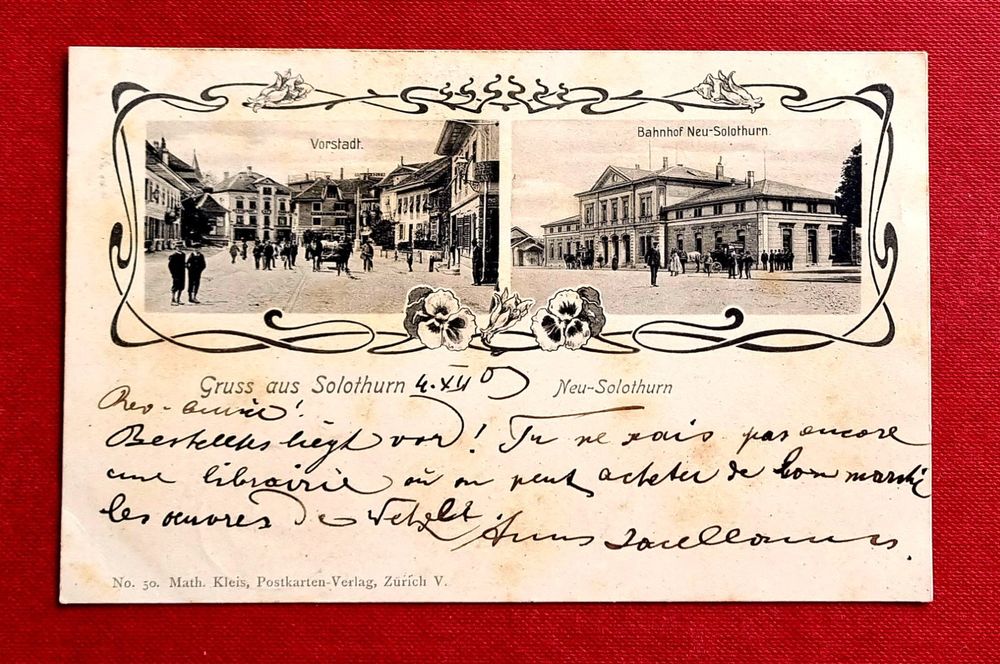 Vorstadt.
Bahnhof Neu-Solothurn.
Gruss aus Solothurn 4. XII
Neu-Solothurn
Bestelltes liegt vor! Tu ne sais pas encore
une librairie où on peut acheter de bon marché
les œuvres de
No. 50. Math. Kleis, Postkarten-Verlag, Zürich V.